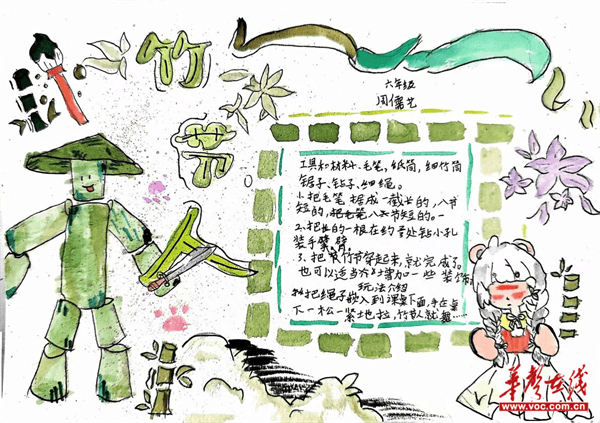 竹
六年级
周儒艺
工具和材料:毛笔,纸筒,细竹筒
锯子、钻子、细绳。
1、把毛笔 锯成一截长的,八节
短的,把毛笔八节短的。
2、把长的一根在约 处钻小孔
装手臂。
3、把 竹节穿起来,就完成了。
也可以适当 增加一些装饰。
玩法介绍
把绳子 入到课桌下面,手在桌
下一松一紧地拉,竹节人就
华声在线
www.voc.com.cn